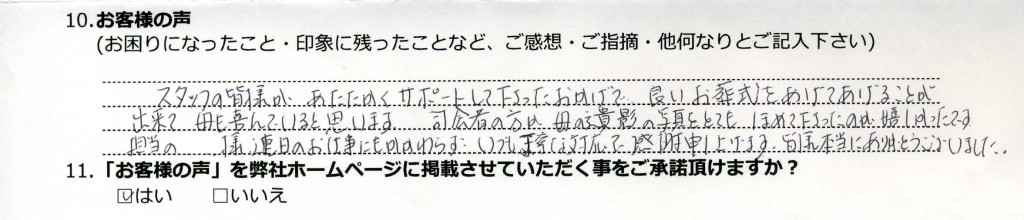 10.お客様の声
(お困りになったこと・印象に残ったことなど、ご感想・ご指摘・他何なりとご記入下さい)
スタッフの皆様が、あたたかくサポートして下さったおかげで、良いお葬式をあげてあげることが
出来て 母も喜んでいると思います。司会者の方が 母の遺影の写真をとても ほめて下さったのが 嬉しかったです
担当の 様 連日のお仕事にもかかわらず いつも丁寧な対応に感謝申し上げます。皆様本当にありがとうございました。
11.「お客様の声」を弊社ホームページに掲載させていただく事をご承諾頂けますか？
☑はい □いいえ